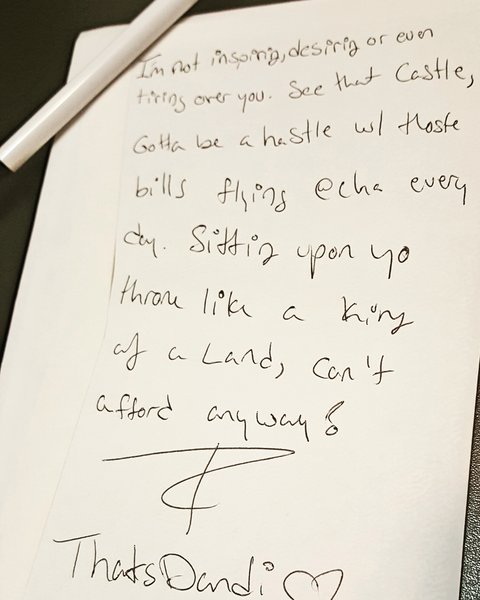 I'm not inspiring, desiring or even
tiring over you. See that Castle,
Gotta be a hastle w/ thoste
bills flying @cha every
day. Sitting upon yo
throne like a King
of a Land, can't
afford anyway
ThatsDandi ♡